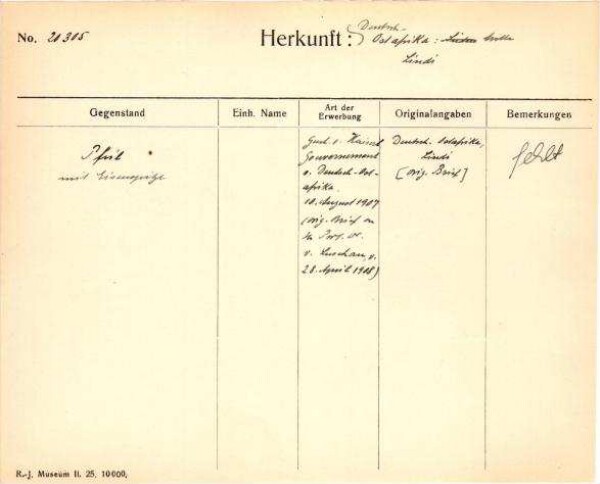 No. 20305
Herkunft: Deutsch-
Ostafrika:
Lindi
Gegenstand
Einh. Name
Art der
Erwerbung
Originalangaben
Bemerkungen
Pfeil
mit Eisenspitze
v. Kaiserl.
Gouvernement
v. Deutsch-Ost-
afrika
10. August 1907
(orig. Brief an
Prof. Dr.
v. Luschan, v.
28. April 1908)
Deutsch-Ostafrika,
Lindi
[orig. Brief]
fehlt
R.-J. Museum II. 25, 10000,